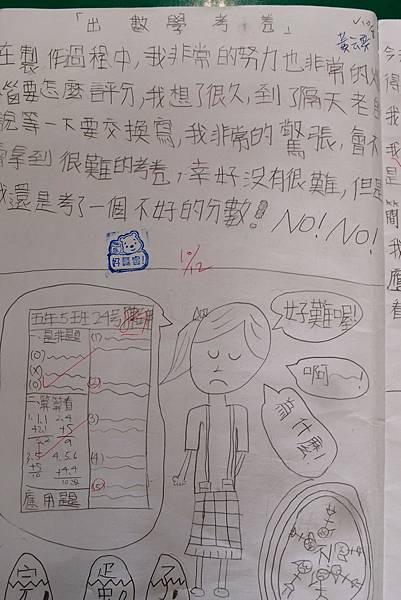 「出數學考卷」
在製作過程中,我非常的努力也非常的
惱要怎麼評分,我想了很久,到了隔天老
說等一下要交換寫,我非常的驚張,會不
拿到很難的考卷,幸好沒有很難,但是
我還是考了一個不好的分數!NO!NO!
10/12
五年5班24號
一是非題
(O)
(X)
(O)
(1)
(2)
(3)
(4)
(5)
二算算看
應用題
好難喔!
啊
為什麼!
完
蛋
了